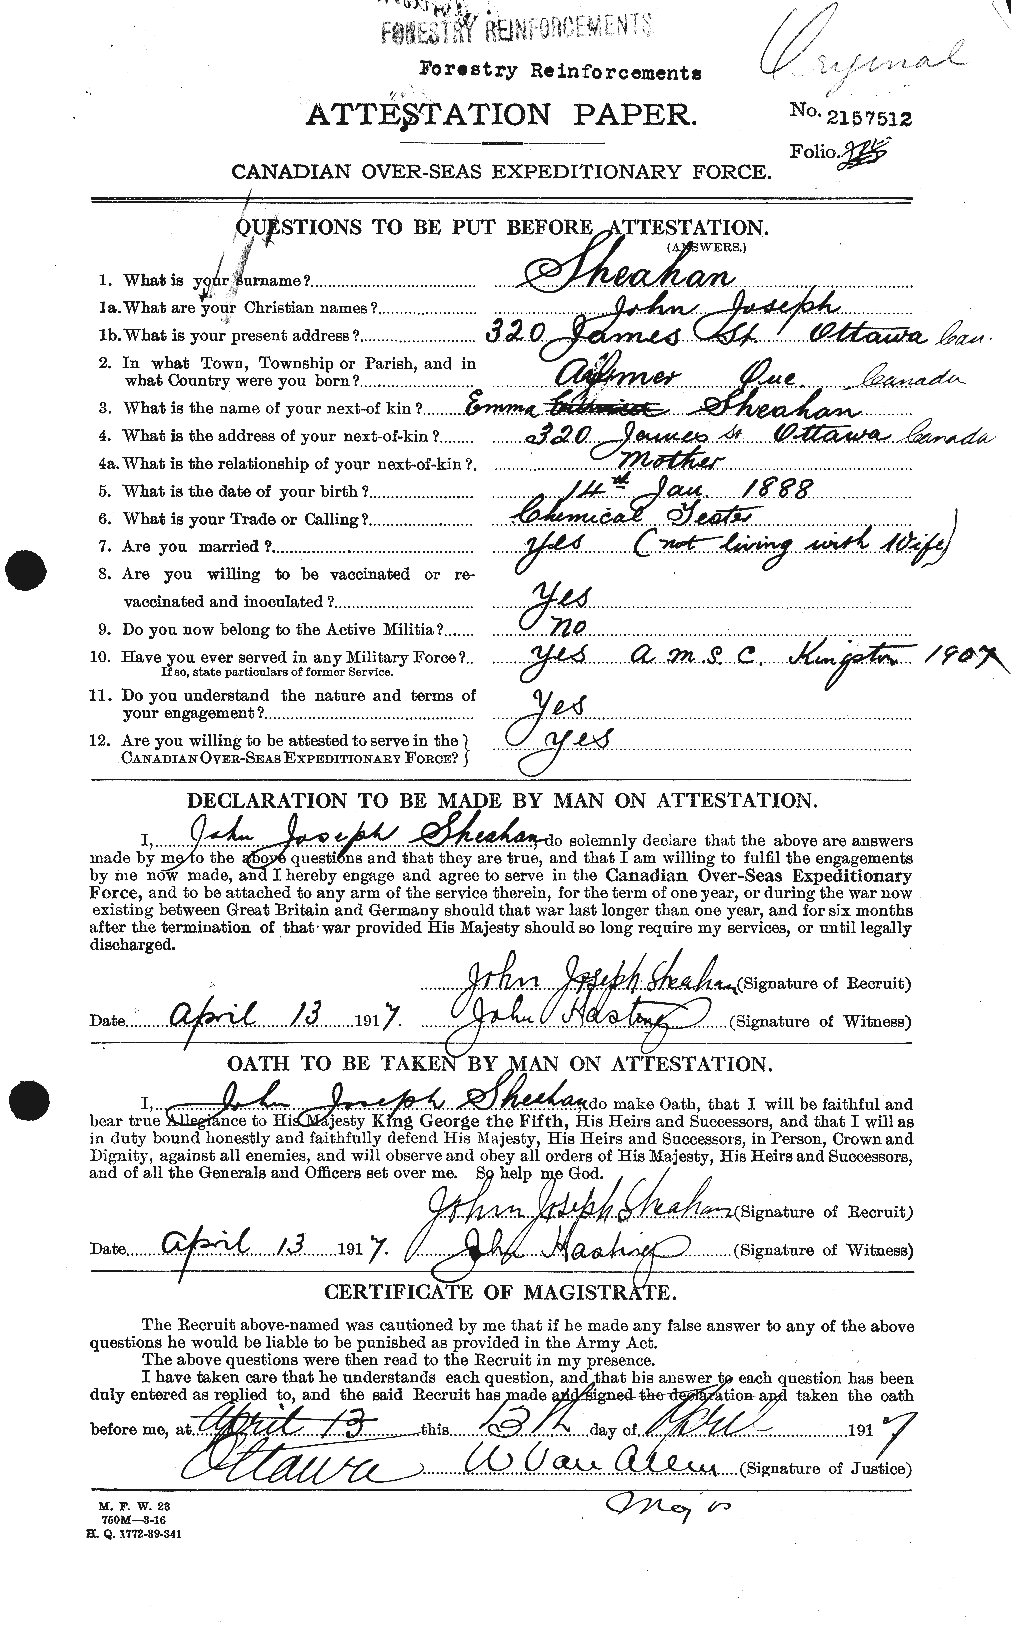 FORESTRY REINFORCEMENTS
Original
Forestry Reinforcements
ATTESTATION PAPER.
No. 2157512
Folio.
CANADIAN OVER-SEAS EXPEDITIONARY FORCE.
QUESTIONS TO BE PUT BEFORE ATTESTATION.
(ANSWERS.)
1. What is your surname? Sheahan
1a. What are your Christian names? John Joseph
1b. What is your present address? 320 James St. Ottawa Can.
2. In what Town, Township or Parish, and in
what Country were you born? Aylmer Que. Canada
3. What is the name of your next-of kin? Emma Sheahan
4. What is the address of your next-of-kin? 320 James St Ottawa Canada
4a. What is the relationship of your next-of-kin? Mother
5. What is the date of your birth? 14th Jan. 1888
6. What is your Trade or Calling? Chemical Tester
7. Are you married? Yes (not living with Wife)
8. Are you willing to be vaccinated or re-
vaccinated and inoculated? Yes
9. Do you now belong to the Active Militia? No
10. Have you ever served in any Military Force? Yes A.M.S.C. Kingston 1907
If so, state particulars of former Service.
11. Do you understand the nature and terms of
your engagement? Yes
12. Are you willing to be attested to serve in the } Yes
CANADIAN OVER-SEAS EXPEDITIONARY FORCE? }
DECLARATION TO BE MADE BY MAN ON ATTESTATION.
I, John Joseph Sheahan, do solemnly declare that the above are answers
made by me to the above questions and that they are true, and that I am willing to fulfil the engagements
by me now made, and I hereby engage and agree to serve in the Canadian Over-Seas Expeditionary
Force, and to be attached to any arm of the service therein, for the term of one year, or during the war now
existing between Great Britain and Germany should that war last longer than one year, and for six months
after the termination of that war provided His Majesty should so long require my services, or until legally
discharged.
John Joseph Sheahan (Signature of Recruit)
Date April 13 1917. John Hastings (Signature of Witness)
OATH TO BE TAKEN BY MAN ON ATTESTATION.
I, John Joseph Sheahan, do make Oath, that I will be faithful and
bear true Allegiance to His Majesty King George the Fifth, His Heirs and Successors, and that I will as
in duty bound honestly and faithfully defend His Majesty, His Heirs and Successors, in Person, Crown and
Dignity, against all enemies, and will observe and obey all orders of His Majesty, His Heirs and Successors,
and of all the Generals and Officers set over me. So help me God.
John Joseph Sheahan (Signature of Recruit)
Date April 13 1917. John Hastings (Signature of Witness)
CERTIFICATE OF MAGISTRATE.
The Recruit above-named was cautioned by me that if he made any false answer to any of the above
questions he would be liable to be punished as provided in the Army Act.
The above questions were then read to the Recruit in my presence.
I have taken care that he understands each question, and that his answer to each question has been
duly entered as replied to, and the said Recruit has made and signed the declaration and taken the oath
before me, at April 13 this 13th day of April 1917
Ottawa W Van Allen (Signature of Justice)
Major
M. F. W. 23
750M—3-16
H. Q. 1772-39-341